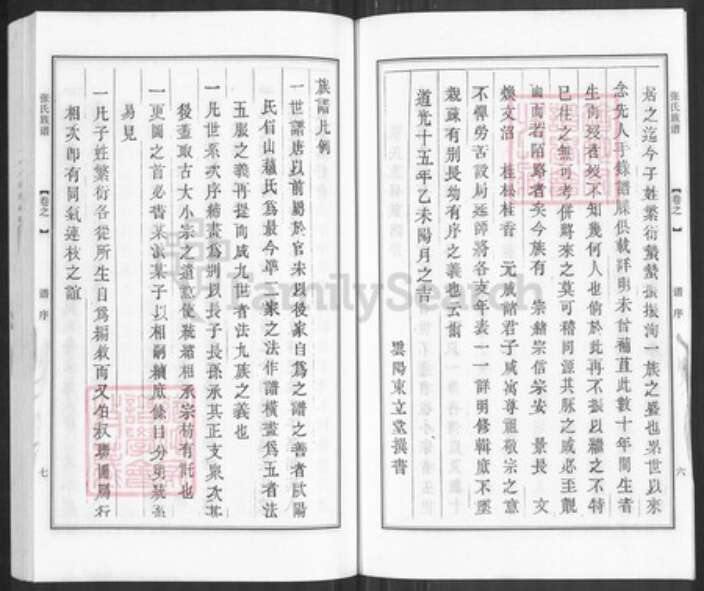 张氏族谱
【卷之 】
谱序
六
居之迄今子姓繁衍蟄蟄振振洵一族之盛也累世以來
念先人手錄譜牒俱載詳明未曾補葺此數十年間生者
生而歿者歿不知幾何人也倘於此再不振以繼之不特
已往之無可考併將來之莫可稽同源共脉之戚必至覿
面而若陌路者矣今族有 宗緒宗信宗安 景長 文
煥文沼 桂松桂香 元成諸君子咸寓尊祖敬宗之意
不憚勞苦設局延師將各支年表一一詳明修輯庶不墜
親疎有別長幼有序之義也云爾
道光十五年乙未陽月之吉
雲陽東立堂撰書
族譜凡例
一世譜唐以前屬於官宋以後家自爲之譜之善者歐陽
氏眉山蘇氏爲最今準二家之法作譜橫盡爲五者法
五服之義再提而成九世者法九族之義也
一凡世系次序稱書爲別以長子長孫承其正支衆次其
後蓋取古大小宗之遺意使統緒相承宗祊有託也
一更圖之首必書某派某子以相嗣續庶餘目分明統系
易見
一凡子姓繁衍各從所生自爲揚敘而又伯叔聯圖屬行
相次即有同氣連枝之誼
张氏族谱
【卷之 】
谱序
七
FamilySearch